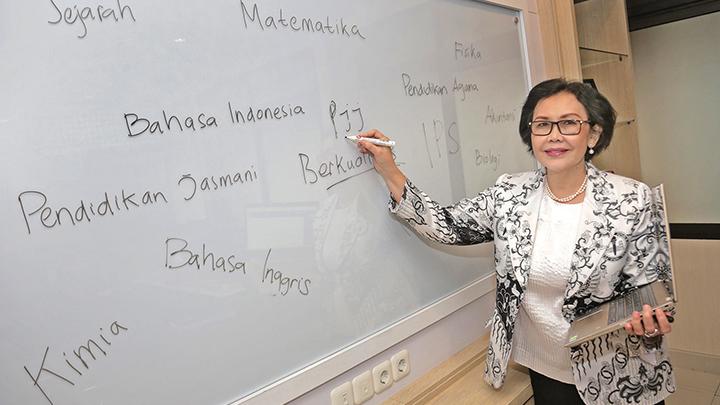 Sejarah
Matematika
Fisika
Pendidikan Agama
Bahasa Indonesia
Pjj
Akuntansi
IPS
Biologi
Pendidikan Jasmani
Bahasa Inggris
Kimia